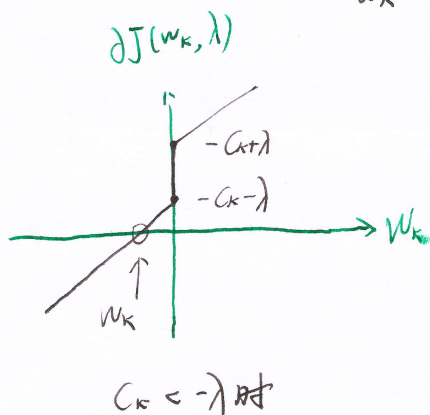 ∂J(wₖ, λ)
-Cₖ+λ
-Cₖ-λ
wₖ
wₖ
Cₖ < -λ 时